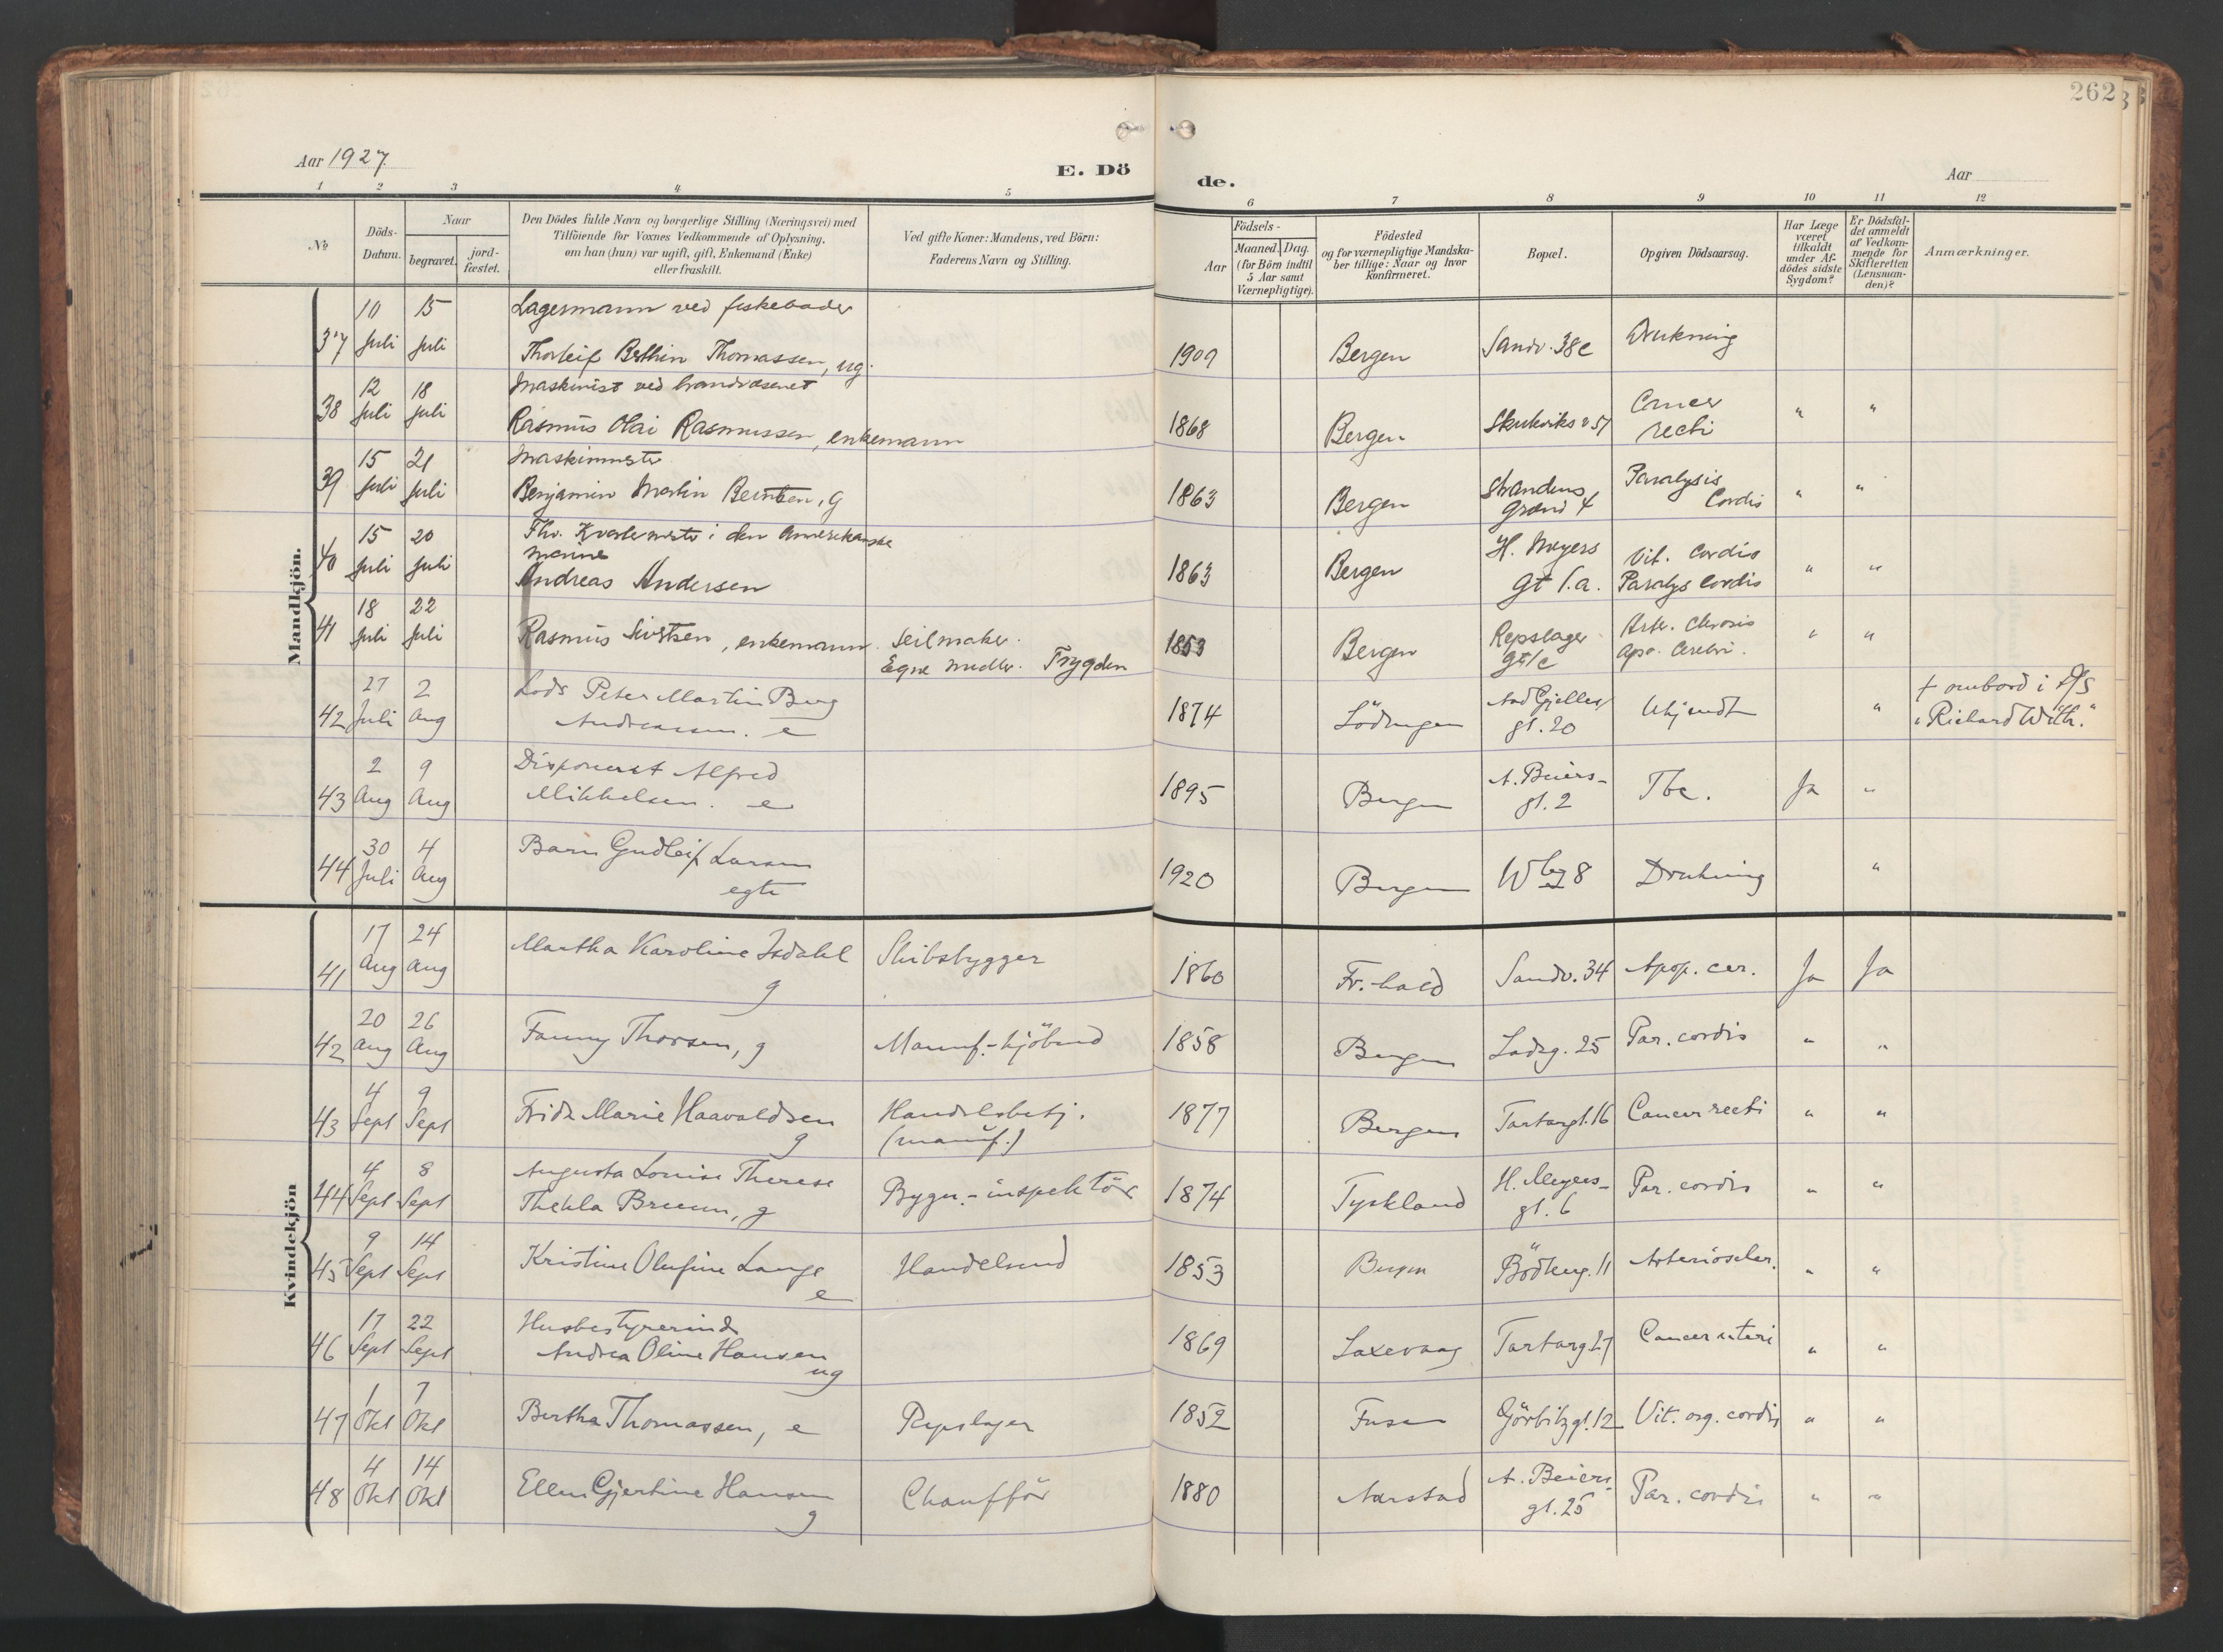 262
Aar 1927
E. Dö
de.
Aar
1 2 3 4 5 6 7 8 9 10 11 12
No
Döds-
Datum.
Naar
begravet.
jord-
fæstet.
Den Dödes fulde Navn og borgerlige Stilling (Næringsvei) med
Tilföiende for Voxnes Vedkommende af Oplysning,
om han (hun) var ugift, gift, Enkemand (Enke)
eller fraskilt.
Ved gifte Koner: Mandens, ved Börn:
Faderens Navn og Stilling.
Födsels-
Aar
Maaned. Dag.
(for Börn indtil
5 Aar samt
Værnepligtige).
Födested
og for værnepligtige Mandska-
ber tillige: Naar og hvor
konfirmeret.
Bopæl.
Opgiven Dödsaarsag.
Har Læge
været
tilkaldt
under Af-
dödes sidste
Sygdom?
Er Dödsfal-
det anmeldt
af Vedkom-
mende for
Skifteretten
(Lensman-
den)?
Anmærkninger.
Mandkjön.
37 10 Juli 15 Juli
Lagermann ved fiskebader
Thorleif Berthin Thomassen, ug.
1909 Bergen Sandv. 38c Drukning
38 12 Juli 18 Juli
Maskinist ved brandvæsenet
Rasmus Olai Rasmussen, enkemann
1868 Bergen Skuteviksv 57 Cancer
recti " "
39 15 Juli 21 Juli
Maskinmester
Benjamin Martin Berntsen, g
1863 Bergen Strandens
Grænd 4 Paralysis
Cordis " "
40 15 Juli 20 Juli
Fhv. Kvartermester i den Amerikanske
marine
Andreas Andersen
1863 Bergen H. Meyers
gt 1.a. Vit. Cordis
Paralys Cordis " "
41 18 Juli 22 Juli
Rasmus Sivertsen, enkemann. Seilmaker.
Egne midler. Trygden
1853 Bergen Repslager
gt 1c Arter. Clerosis
Apo. Cerebri. " "
42 27 Juli 2 Aug
Lods Peter Martin Berg
Andreassen. e
1874 Lödingen
gt. 20 Ukjendt "
+ ombord i D/S
"Richard With."
43 2 Aug 9 Aug
Disponent Alfred
Mikkelsen. e
1895 Bergen A. Beiers-
gt. 2 Tbc. Ja "
44 30 Juli 4 Aug
Barn Gudleif Larsen
egte
1920 Bergen 8 Drukning "
Kvindekjön
41 17 Aug 24 Aug
Martha Karoline Isdahl
g
Skibsbygger
1860 Fr.-hald Sandv. 34 Apop. cer. Ja Ja
42 20 Aug 26 Aug
Fanny Thorsen, g
Manuf.-kjöbmd
1858 Bergen Ladeg. 25 Par. cordis " "
43 4 Sept 9 Sept
Frida Marie Haavaldsen
g
Handelsbetj.
(manuf.)
1877 Bergen Tartargt. 16 Cancer recti " "
44 4 Sept 8 Sept
Augusta Louise Therese
Thekla Bruun, g
Bygn.-inspektör
1874 Tyskland H. Meyers-
gt. 6 Par. cordis " "
45 9 Sept 14 Sept
Kristine Olufine Lange
e
Handelsmd
1853 Bergen Bödkerg. 11 Arterioscler. " "
46 17 Sept 22 Sept
Husbestyrerinde
Andrea Oline Hansen
ug
1869 Laxevaag Tartargt. 27 Cancer uteri " "
47 1 Okt 7 Okt
Bertha Thomassen, e
Repslager
1852 Fuse Görbitzgt. 12 Vit. org. cordis " "
48 4 Okt 14 Okt
Ellen Gjertine Hansen
g
Chaufför
1880 Aarstad A. Beiers-
gt. 25 Par. cordis " "